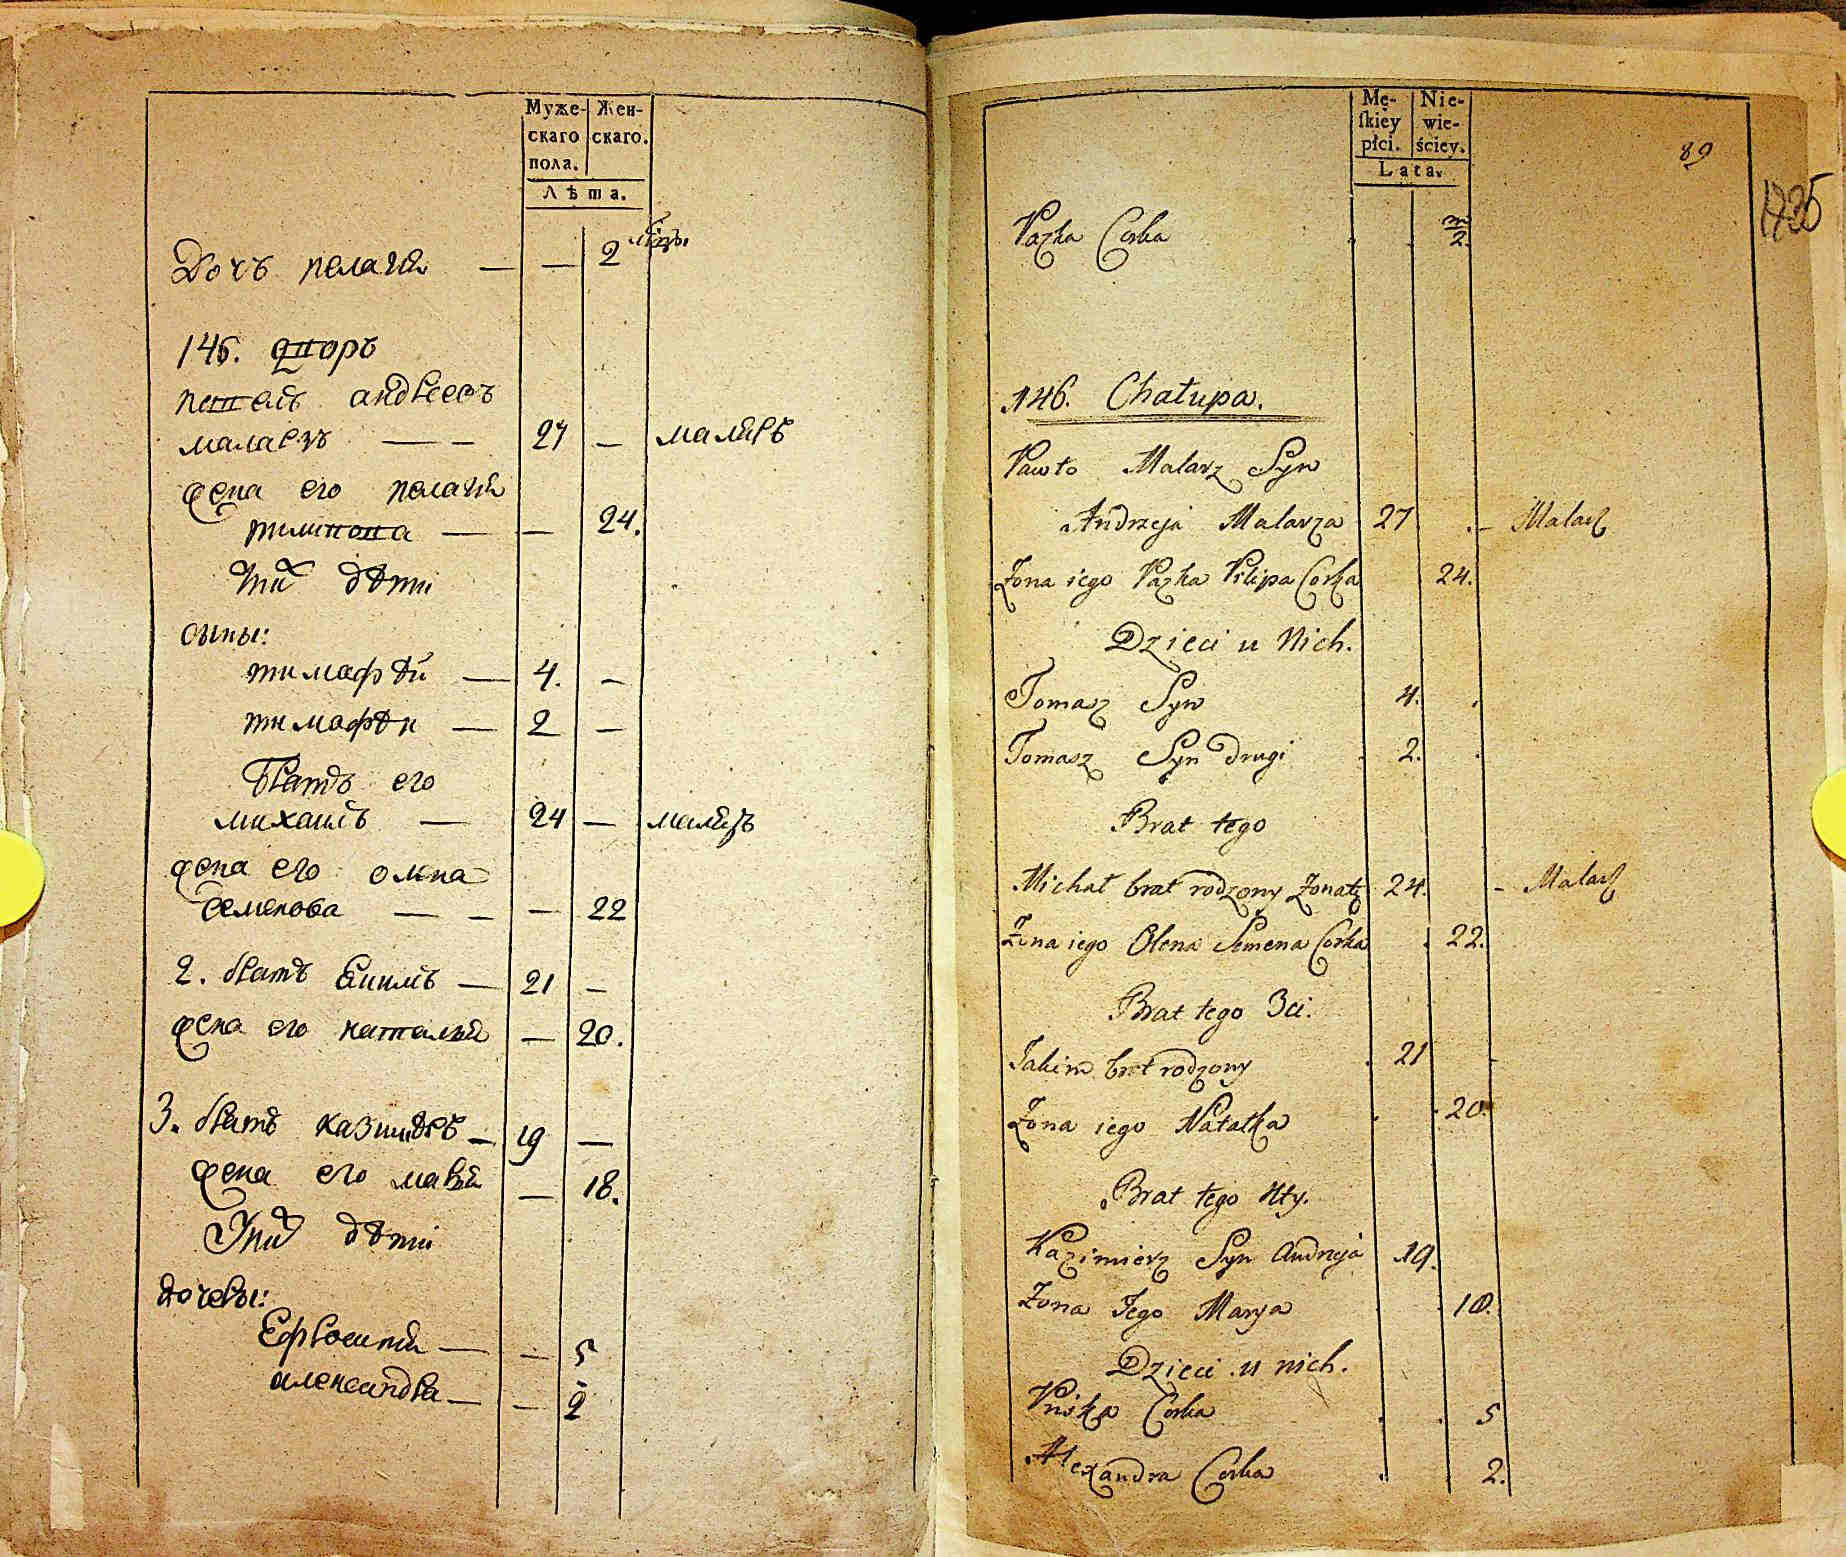 Муже-
скаго
пола.
Жен-
скаго.
Лѣта.
Дочъ пелагия — — 2
146. Дворъ
павелъ андреевъ
маларзъ — — 27 — маляръ
жена его пелагия
филипова — — 24.
У них дѣти
сыны:
тимафѣй — 4. —
тимафѣи — 2 —
Братъ его
михаилъ — 24 — маляръ
жена его олена
семенова — — — 22
2. братъ Екимъ — 21 —
жена его наталия — 20.
3. братъ казимѣръ — 19 —
жена его мария — 18.
У них дѣти
дочеры:
Ефросиния — — 5
александра — — 2
Mę-
ſkiey
płci.
Nie-
wie-
ściey.
Lata.
89
Pazka Corka m 2.
146. Chałupa.
Pawło Malarz Syn
Andrzeja Malarza 27 . – Malarz
Zona iego Pazka Filipa Corka 24.
Dzieci u Nich.
Tomasz Syn 4. .
Tomasz Syn drugi . 2. .
Brat tego
Michał brat rodzony Zonaty 24. - Malarz
Zona iego Olena Semena Corka . 22.
Brat tego 3ci.
Jakim brat rodzony . 21 -
Zona iego Natałka . . 20.
Brat tego 4ty.
Kazimierz Syn Andrzeja 19.
Zona Jego Marya . . 18.
Dzieci u nich.
Pryska Corka . . 5
Alexandra Corka . 2.